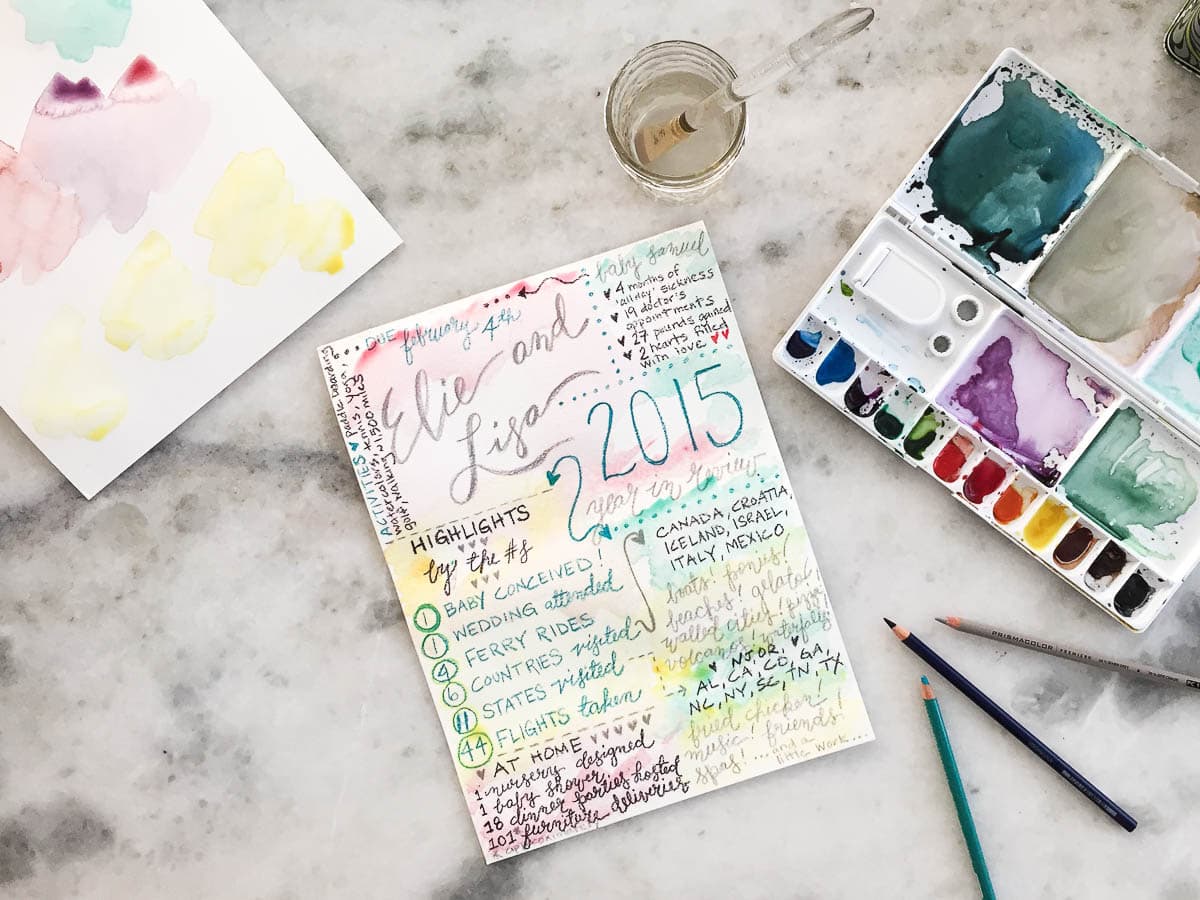 DUE february 4th
Elie and
Lisa
baby samuel
♥ 4 months of
'all day' sickness
♥ 19 doctor's
appointments
♥ 27 pounds gained
♥ 2 hearts filled
with love ♥♥
2015
year in review
ACTIVITIES ♥ paddle boarding,
watercolors, tennis, yoga,
golf, walking ~1500 miles
HIGHLIGHTS
by the #s
1 BABY CONCEIVED!
1 WEDDING attended
4 FERRY RIDES
6 COUNTRIES visited
11 STATES visited
44 FLIGHTS taken
♥ CANADA, CROATIA,
ICELAND, ISRAEL,
ITALY, MEXICO
boats! ponys!
beaches! gelato!
walled cities! pizza!
volcanos! waterfalls!
♥ NJ, OR, ♥
→ AL, CA, CO, GA,
NC, NY, SC, TN, TX
fried chicken!
music! friends!
spas! ...and a
little work...
♥ AT HOME
1 nursery designed
1 baby shower
18 dinner parties hosted
101* furniture deliveries
PRISMACOLOR PREMIER